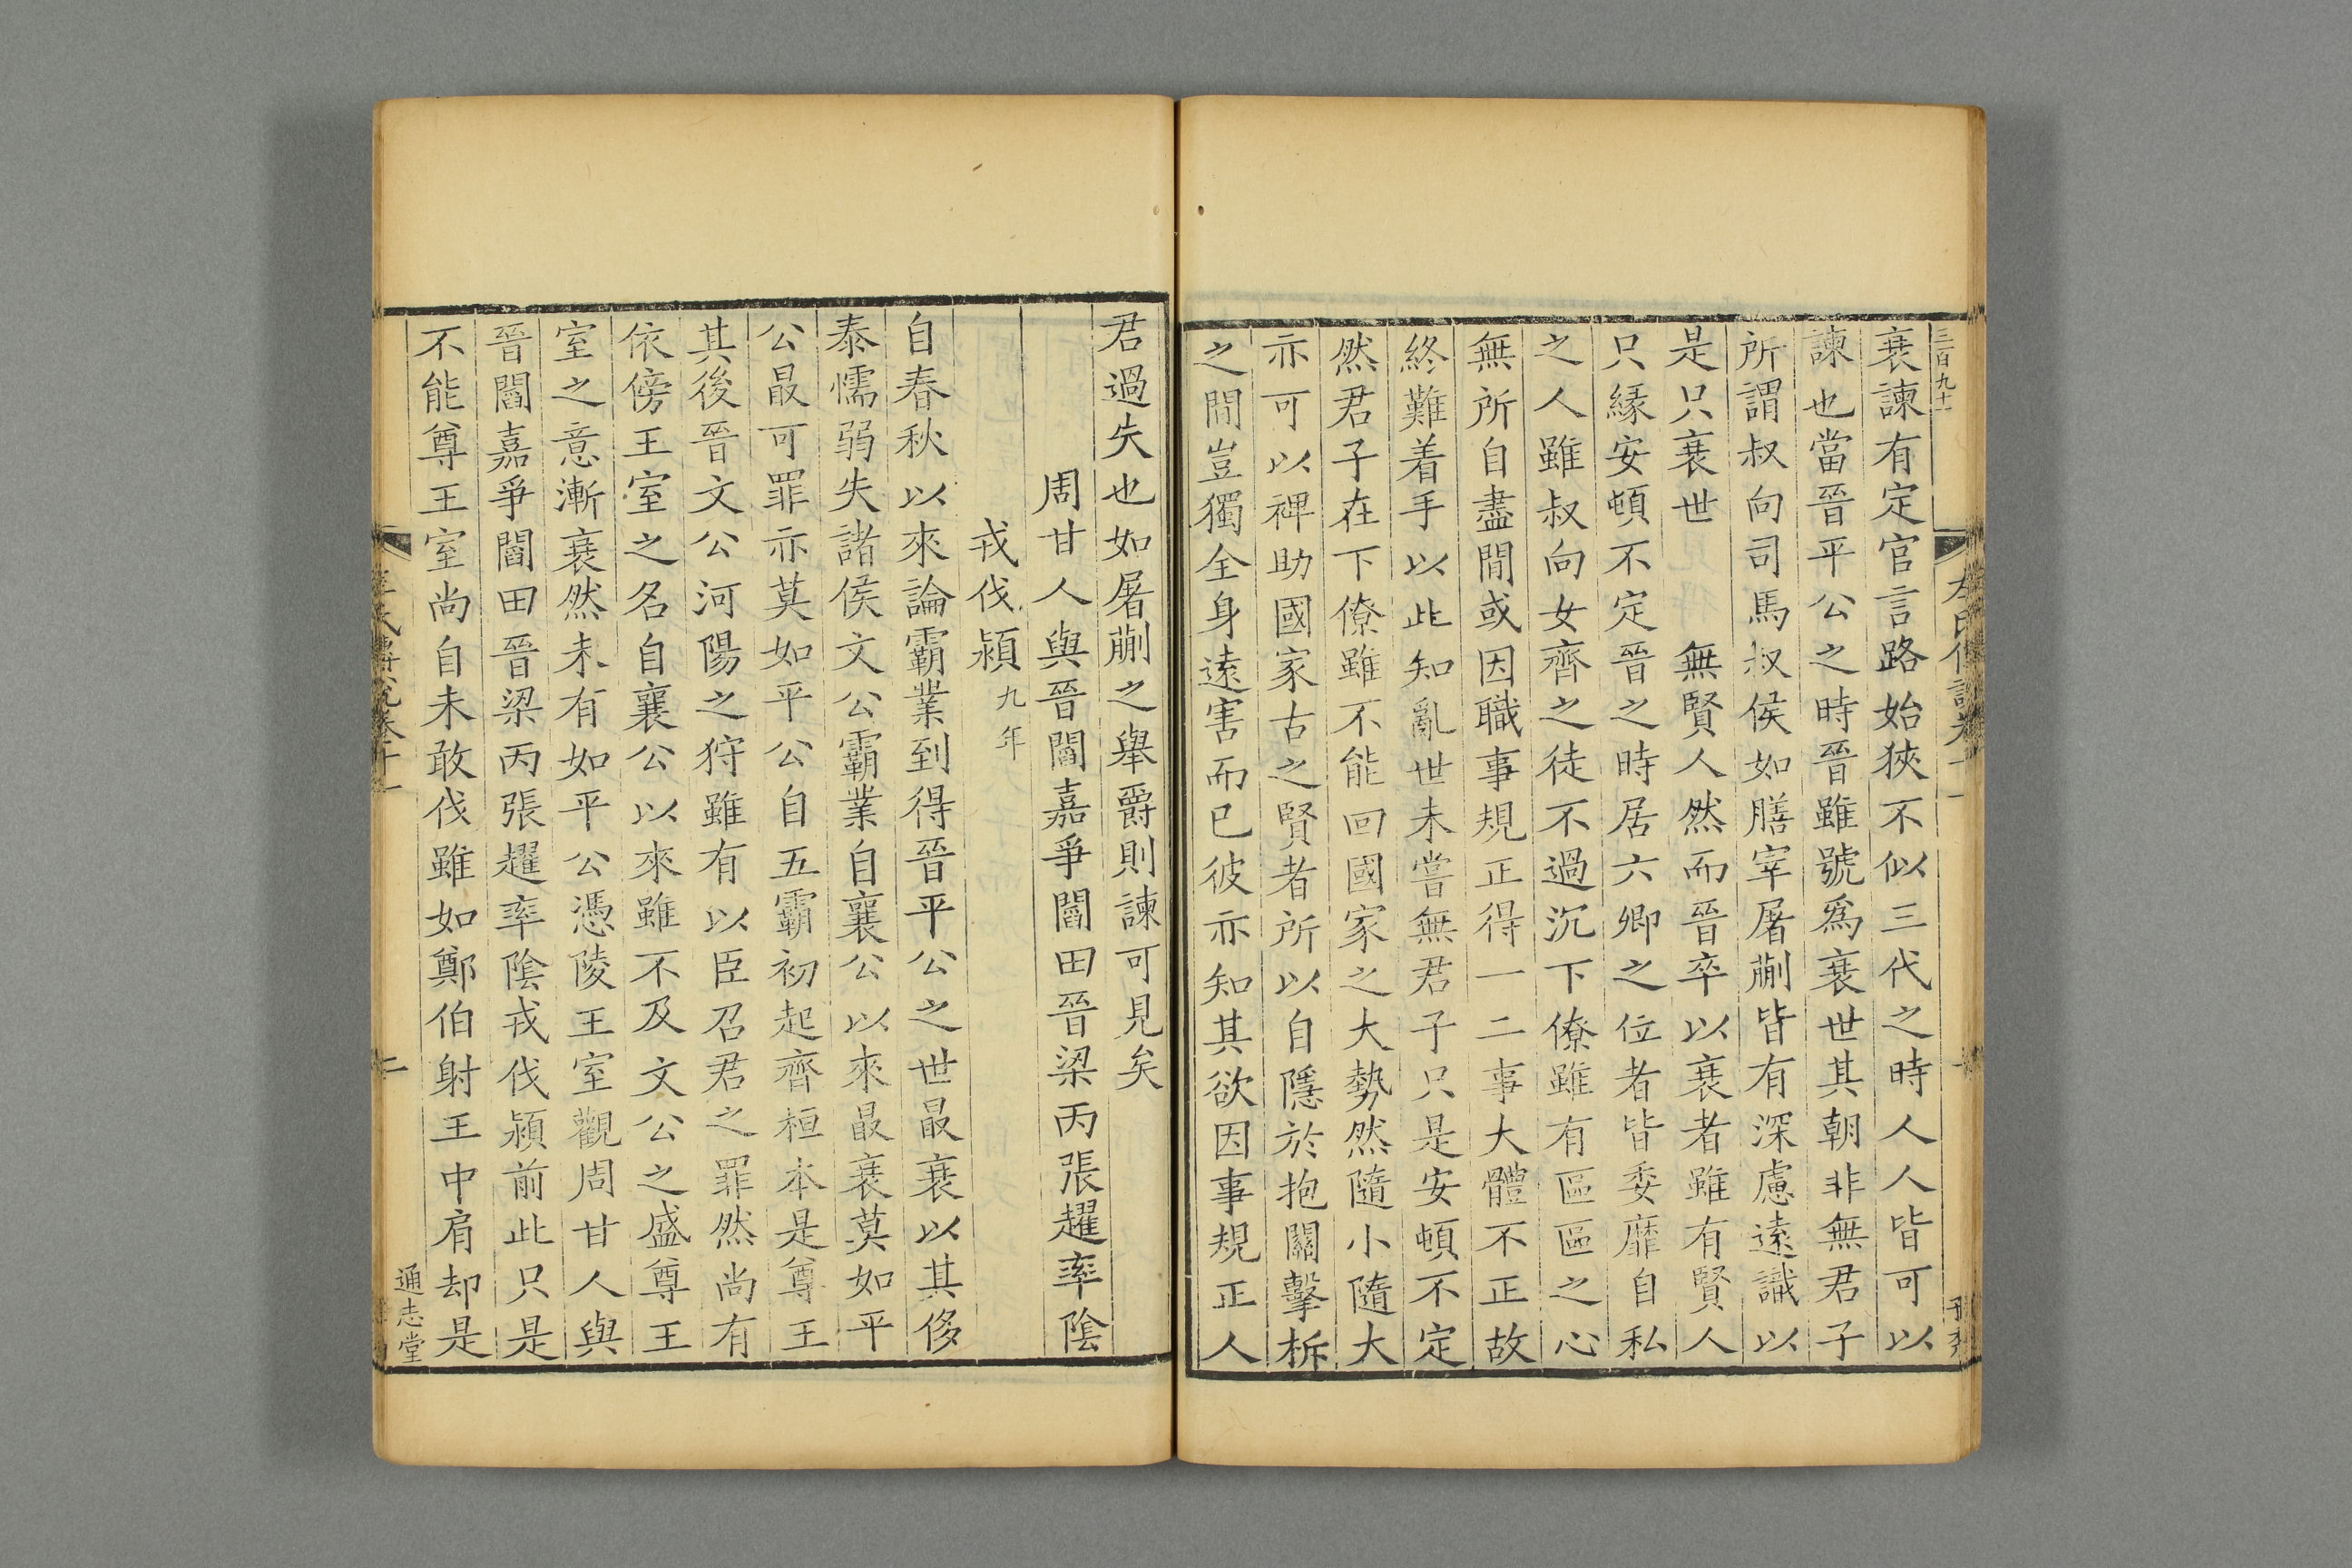 三百九十
左氏傳說卷十一
衰諫有定官言路始狹不似三代之時人人皆可以
諫也當晉平公之時晉雖號爲衰世其朝非無君子
所謂叔向司馬叔侯如膳宰屠蒯皆有深慮遠識以
是只衰世 無賢人然而晉卒以衰者雖有賢人
只縁安頓不定晉之時居六卿之位者皆委靡自私
之人雖叔向女齊之徒不過沉下僚雖有區區之心
無所自盡間或因職事規正得一二事大體不正故
終難着手以此知亂世未嘗無君子只是安頓不定
然君子在下僚雖不能回國家之大勢然隨小隨大
亦可以裨助國家古之賢者所以自隱於抱關擊柝
之間豈獨全身遠害而已彼亦知其欲因事規正人
君過失也如屠蒯之舉爵則諫可見矣
周甘人與晉閻嘉爭閻田晉梁丙張趯率陰
戎伐潁九年
自春秋以來論霸業到得晉平公之世最衰以其侈
泰懦弱失諸侯文公霸業自襄公以來最衰莫如平
公最可罪亦莫如平公自五霸初起齊桓本是尊王
其後晉文公河陽之狩雖有以臣召君之罪然尚有
依傍王室之名自襄公以來雖不及文公之盛尊王
室之意漸衰然未有如平公憑陵王室觀周甘人與
晉閻嘉爭閻田晉梁丙張趯率陰戎伐潁前此只是
不能尊王室尚自未敢伐雖如鄭伯射王中肩却是
左氏傳說卷十一
二
通志堂